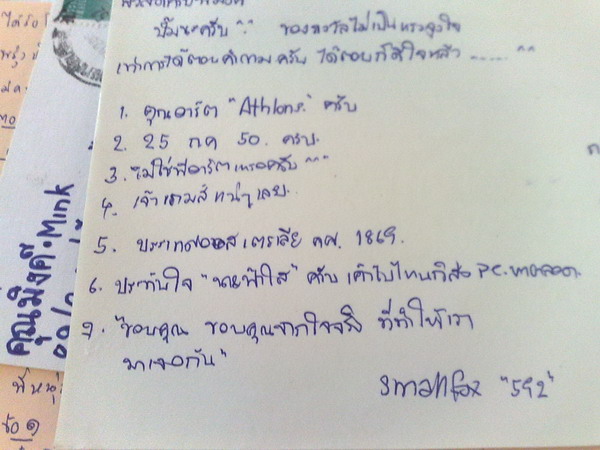 ปั๊มนะครับ ^^ ของรางวัลไม่เป็นแรงจูงใจ
เท่าการได้ตอบคำถามครับ ได้ตอบก็ดีใจแล้ว ...... ^^
1. คุณอาร์ต "Athlons" ครับ
2. 25 กค 50. ครับ.
3. ไม่ใช่พี่อาร์ตเหรอครับ ^^
4. เจ้าเรามส์ หน่าเลย.
5. ประเทศออสเตรเลีย คศ. 1869.
6. ประทับใจ "นายฟ้าใส" ครับ เค้าไปไหนก็ส่ง PC. มาตลอด.
7. "ขอบคุณ ขอบคุณจากใจจริง ที่ทำให้เรา
มาเจอกัน"
smallfox "592"
คุณมิงค์ • Mink
พี่หนุ่
ข้อ ๑
ได้รับ